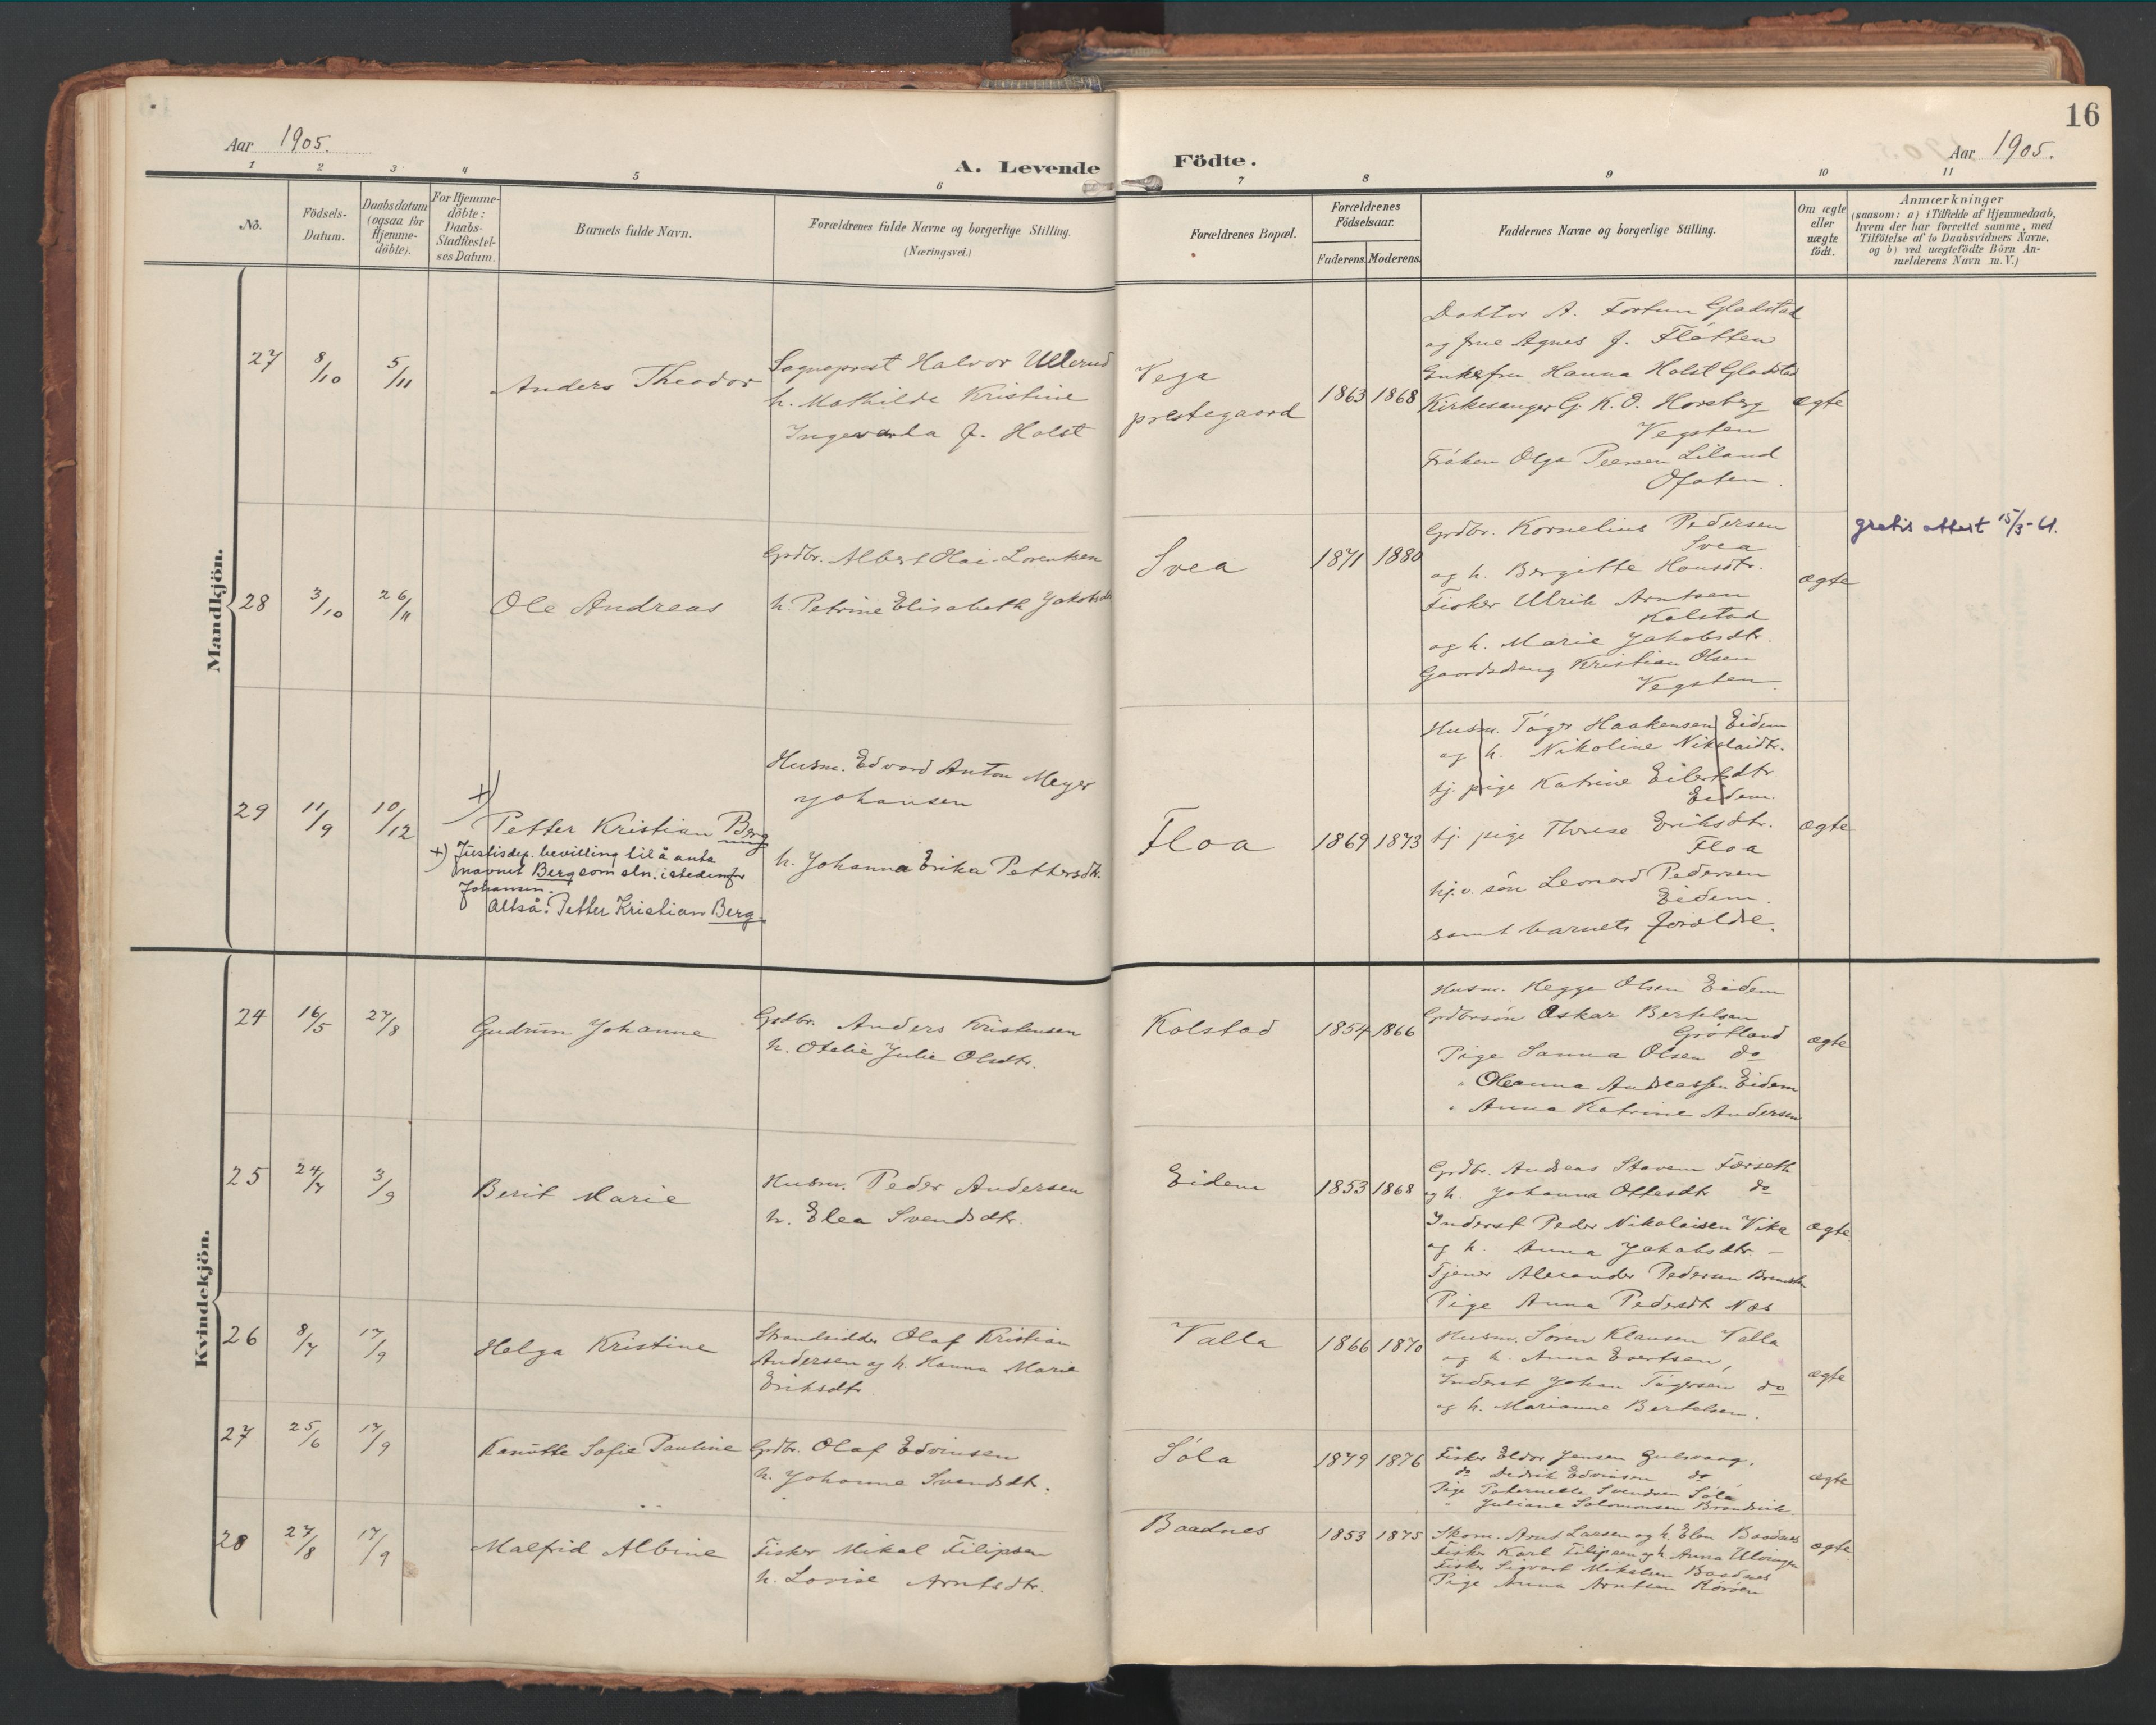 16
Aar 1905.
A. Levende Födte.
Aar 1905.
1 2 3 4 5 6 7 8 9 10 11
No.
Födsels-
Datum.
Daabsdatum
(ogsaa for
Hjemme-
döbte).
For Hjemme-
döbte:
Daabs-
Stadfæstel-
ses Datum.
Barnets fulde Navn.
Forældrenes fulde Navne og borgerlige Stilling.
(Næringsvei.)
Forældrenes Bopæl.
Forældrenes
Födselsaar.
Faderens. Moderens.
Faddernes Navne og borgerlige Stilling.
Om ægte
eller
uægte
födt.
Anmærkninger
(saasom: a) i Tilfælde af Hjemmedaab,
hvem der har forrettet samme, med
Tilföielse af to Daabsvidners Navne,
og b) ved uægtefödte Börn An-
melderens Navn m. V.)
Mandkjön.
27 8/10 5/11 Anders Theodor
Sogneprest Halvor Ullerud
h. Mathilde Kristine
Ingevarda f. Holst
Vega
prestegaard
1863 1868
Doktor A. Fortun Gladstad
og frue Agnes f. Fløtten
Enkefru Hanna Holst Gladstad
Kirkesanger G. K. O. Horsberg
Vegsten
Frøken Olga Peersen Liland
Ofoten.
ægte
28 3/10 26/11 Ole Andreas
Grdbr. Albert Olai Lorentsen
h. Petrine Elisabeth Jakobsdtr
Svea
1871 1880
Grdbr. Kornelius Pedersen
Svea
og h. Bergitte Hansdtr.
Fisker Ulrik Arntsen
Kolstad
og h. Marie Jakobsdtr.
Gaardsdreng Kristian Olsen
Vegsten.
ægte
gratis attest 15/3-61.
29 11/9 10/12 +) Petter Kristian Berg
+) Justisdep. bevilling til å anta
navnet Berg som sln. istedenfor
Johansen.
Altså: Petter Kristian Berg.
Husm. Edvard Anton Meyer
Johansen
h. Johanna Erika Pettersdtr.
Floa
1869 1873
Husm. Tøger Haakensen Eidem
og h. Nikoline Nikolaidtr.
tj. pige Katrine Eilertsdtr
Eidem.
tj. pige Threse Eriksdtr.
Floa
hj.v. søn Leonard Pedersen
Eidem.
samt barnets foreldre.
ægte
Kvindekjön.
24 16/5 27/8 Gudrun Johanne
Grdbr. Anders Kristensen
h. Otelie Julie Olsdtr.
Kolstad
1854 1866
Husm. Hegge Olsen Eidem
Grdbrsøn Oskar Bertelsen
Grøtland
Pige Sanna Olsen do
" Oleanna Andreassen Eidem
" Anna Katrine Andersen
ægte
25 24/7 3/9 Berit Marie
Husm. Peder Andersen
h. Elea Svendsdtr.
Eidem
1853 1868
Grdbr. Andreas Stavem Færseth
og h. Johanna Ottesdtr do
Inderst Peder Nikolaisen Vika
og h. Anna Jakobsdtr. -
Tjener Alexander Pedersen
Pige Anna Pedersdtr Næs
ægte.
26 8/7 17/9 Helga Kristine
Strandsidder Olaf Kristian
Andersen og h. Hanna Marie
Eriksdtr.
Valla
1866 1870
Husm. Søren Klausen Valla
og h. Anna Evertsen,
Inderst Johan Tøgersen do
og h. Marianne Bertelsen.
ægte
27 25/6 17/9 Kanutte Sofie Pauline
Grdbr. Olaf Edvinsen
h. Johanne Svendsdtr.
Sóla
1879 1876
Fisker Eldor Jensen Gulsvaag.
do Didrik Edvinsen do
Pige Peternelle Svendsen Sóla
" Juliane Salomonsen
ægte
28 27/8 17/9 Malfrid Albine
Fisker Mikal Filipsen
h. Lovise Arntsdtr.
Baadnes
1853 1875
Skom. Arnt Larsen og h. Elen Baadnes
Fisker Karl Filipsen og h. Anna Ulvingen
Fisker Sigvart Mikalsen Baadnes
Pige Anna Arntsen Rørøen
ægte.